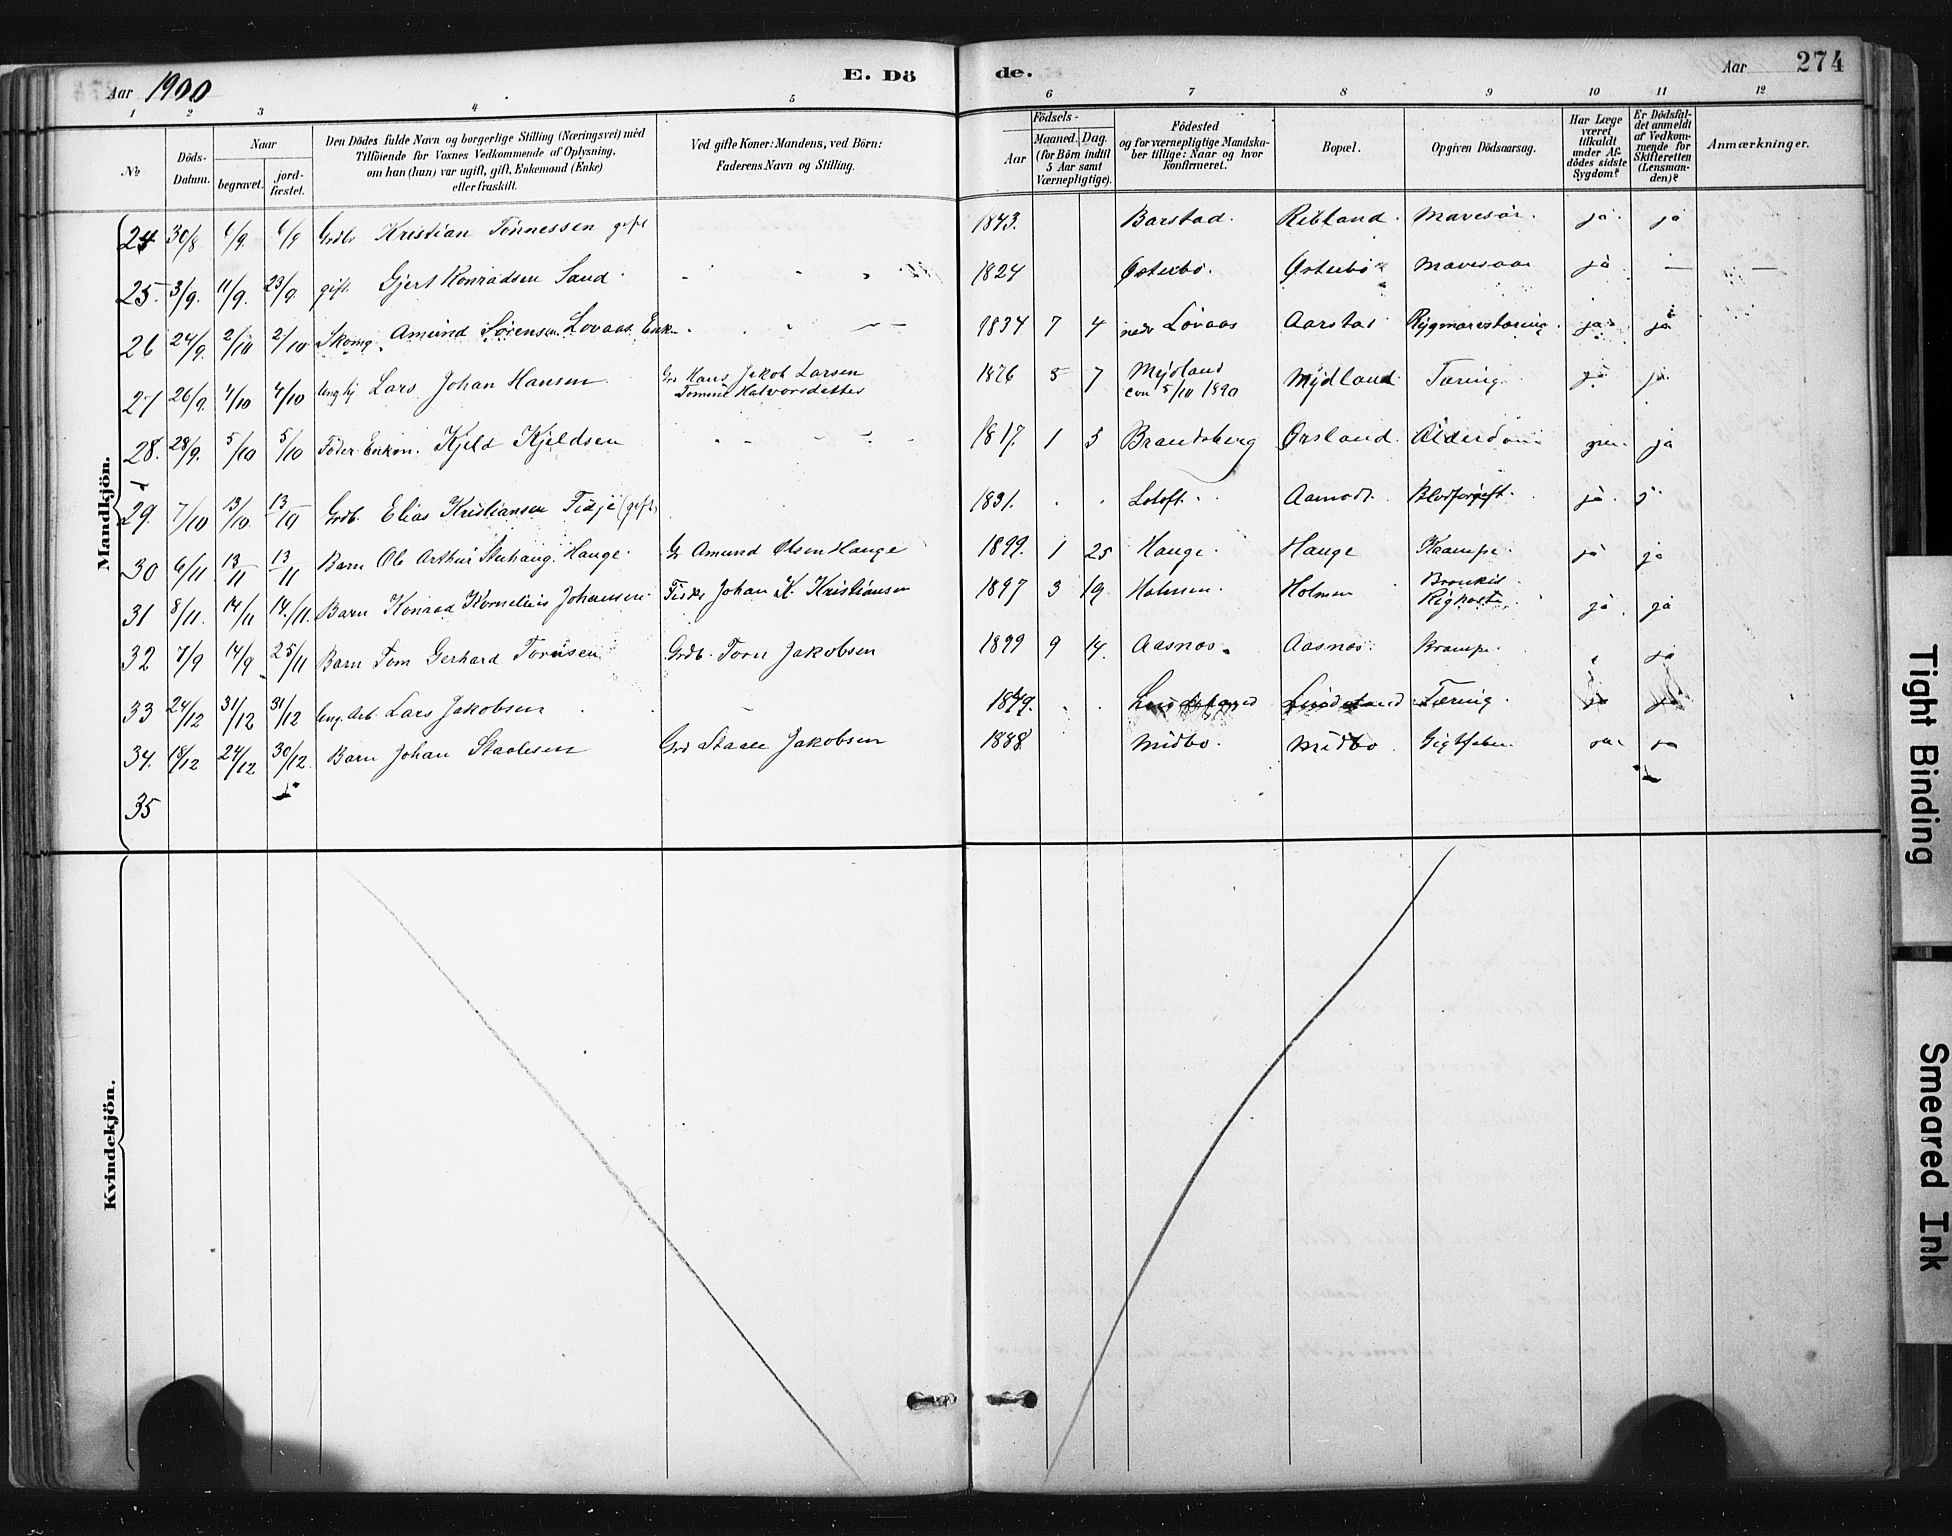 Aar 1900
E. Dö
de.
Aar
274
1 2 3 4 5 6 7 8 9 10 11 12
No
Döds-Datum.
Naar
begravet.
jord-fæstet.
Den Dödes fulde Navn og borgerlige Stilling (Næringsvei) med
Tilföiende for Voxnes Vedkommende af Oplysning,
om han (hun) var ugift, gift, Enkemand (Enke)
eller fraskilt.
Ved gifte Koner: Mandens, ved Börn:
Faderens Navn og Stilling.
Födsels-
Aar
Maaned. Dag.
(for Börn indtil
5 Aar samt
Værnepligtige).
Födested
og for værnepligtige Mandska-
ber tillige: Naar og hvor
konfirmeret.
Bopæl.
Opgiven Dödsaarsag.
Har Læge
været
tilkaldt
under Af-
dödes sidste
Sygdom?
Er Dödsfal-
det anmeldt
af Vedkom-
mende for
Skifteretten
(Lensman-
den)?
Anmærkninger.
Mandkjön.
24 30/8 6/9 6/9 Grdbr Kristian Tönnessen gift 1843. Barstad. Ribland. Mavesår. ja ja
25. 3/9. 11/9. 23/9. gift. Gjert Konradsen Sand 1824 Østerbö. Østerbö Mavesaar ja — —
26 24/9. 2/10 2/10 Amund Sörensen Lovaas. Enk 1834 7 4 nedr Lövaas Aarstad ja ja
27 26/9. 4/10 4/10 Ung hj Lars Johan Hansen Grd Hans Jakob Larsen
Tomine Halvorsdatter 1876 5 7 Mydland
con 5/10 1890 Mydland Tæring. ja ja
28. 28/9. 5/10 5/10 Föder Enkem. Kjeld Kjeldsen 1817. 1 5 Brandsberg Ørsland. Alderdom ja
29. 7/10 13/10. Grdb. Elias Kristiansen Tidje (gift) 1831. Loloft. Aamodt. Blodforgift. ja
30 6/11 13/11 13/11 Barn Ole Arthur Hauge. Gr Amund Olsen Hauge 1899. 1 25 Hauge. Hauge Krampe. ja ja
31 8/11. 14/11 14/11. Barn Konrad Kornelius Johansen. Fisker Johan K. Kristiansen 1897 3 19. Holmen. Holmen Bronkit ja. ja
32 7/9 14/9 25/11 Barn Tom Gerhard Tornsen Grdb. Torn Jakobsen 1899 9 14. Aasnas. Aasnas. Krampe. ja
33 24/12 31/12 31/12 Ung. Arb. Lars Jakobsen 1879. Tæring. ja ja
34. 18/12 24/12 30/12. Barn Johan Staalesen Grd Staale Jakobsen 1888 Midbo. Midbo Gigtfeber. ja
35
Kvindekjön.
Tight Binding
Smeared Ink